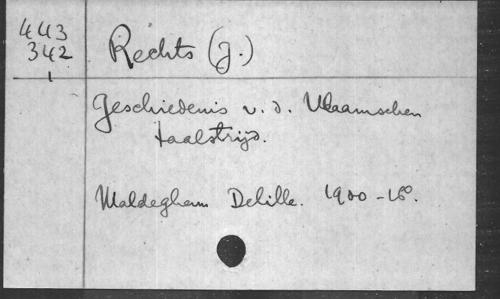 443
342
1
Rechts (J.)
Geschiedenis v. d. Vlaamschen
taalstrijd.
Maldeghem Delille. 1900 - 16°.